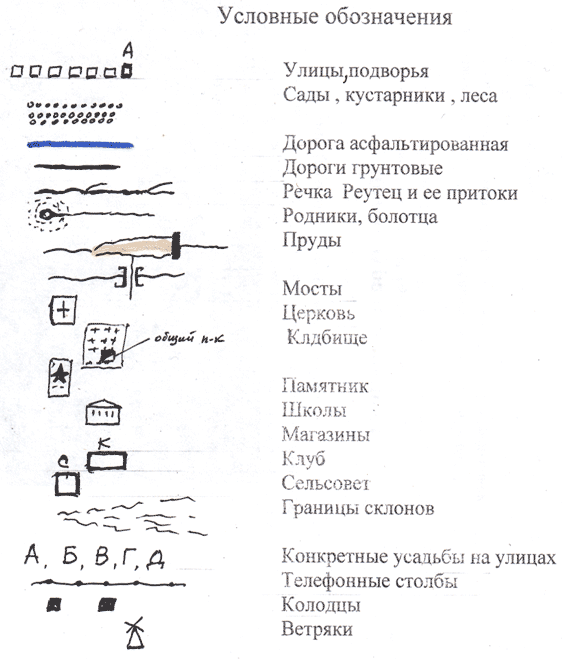 Условные обозначения
А
Улицы,подворья
Сады , кустарники , леса
Дорога асфальтированная
Дороги грунтовые
Речка Реутец и ее притоки
Родники, болотца
Пруды
Мосты
Церковь
Клдбище
общий п-к
Памятник
Школы
Магазины
К
Клуб
С
Сельсовет
Границы склонов
А, Б, В, Г, Д
Конкретные усадьбы на улицах
Телефонные столбы
Колодцы
Ветряки